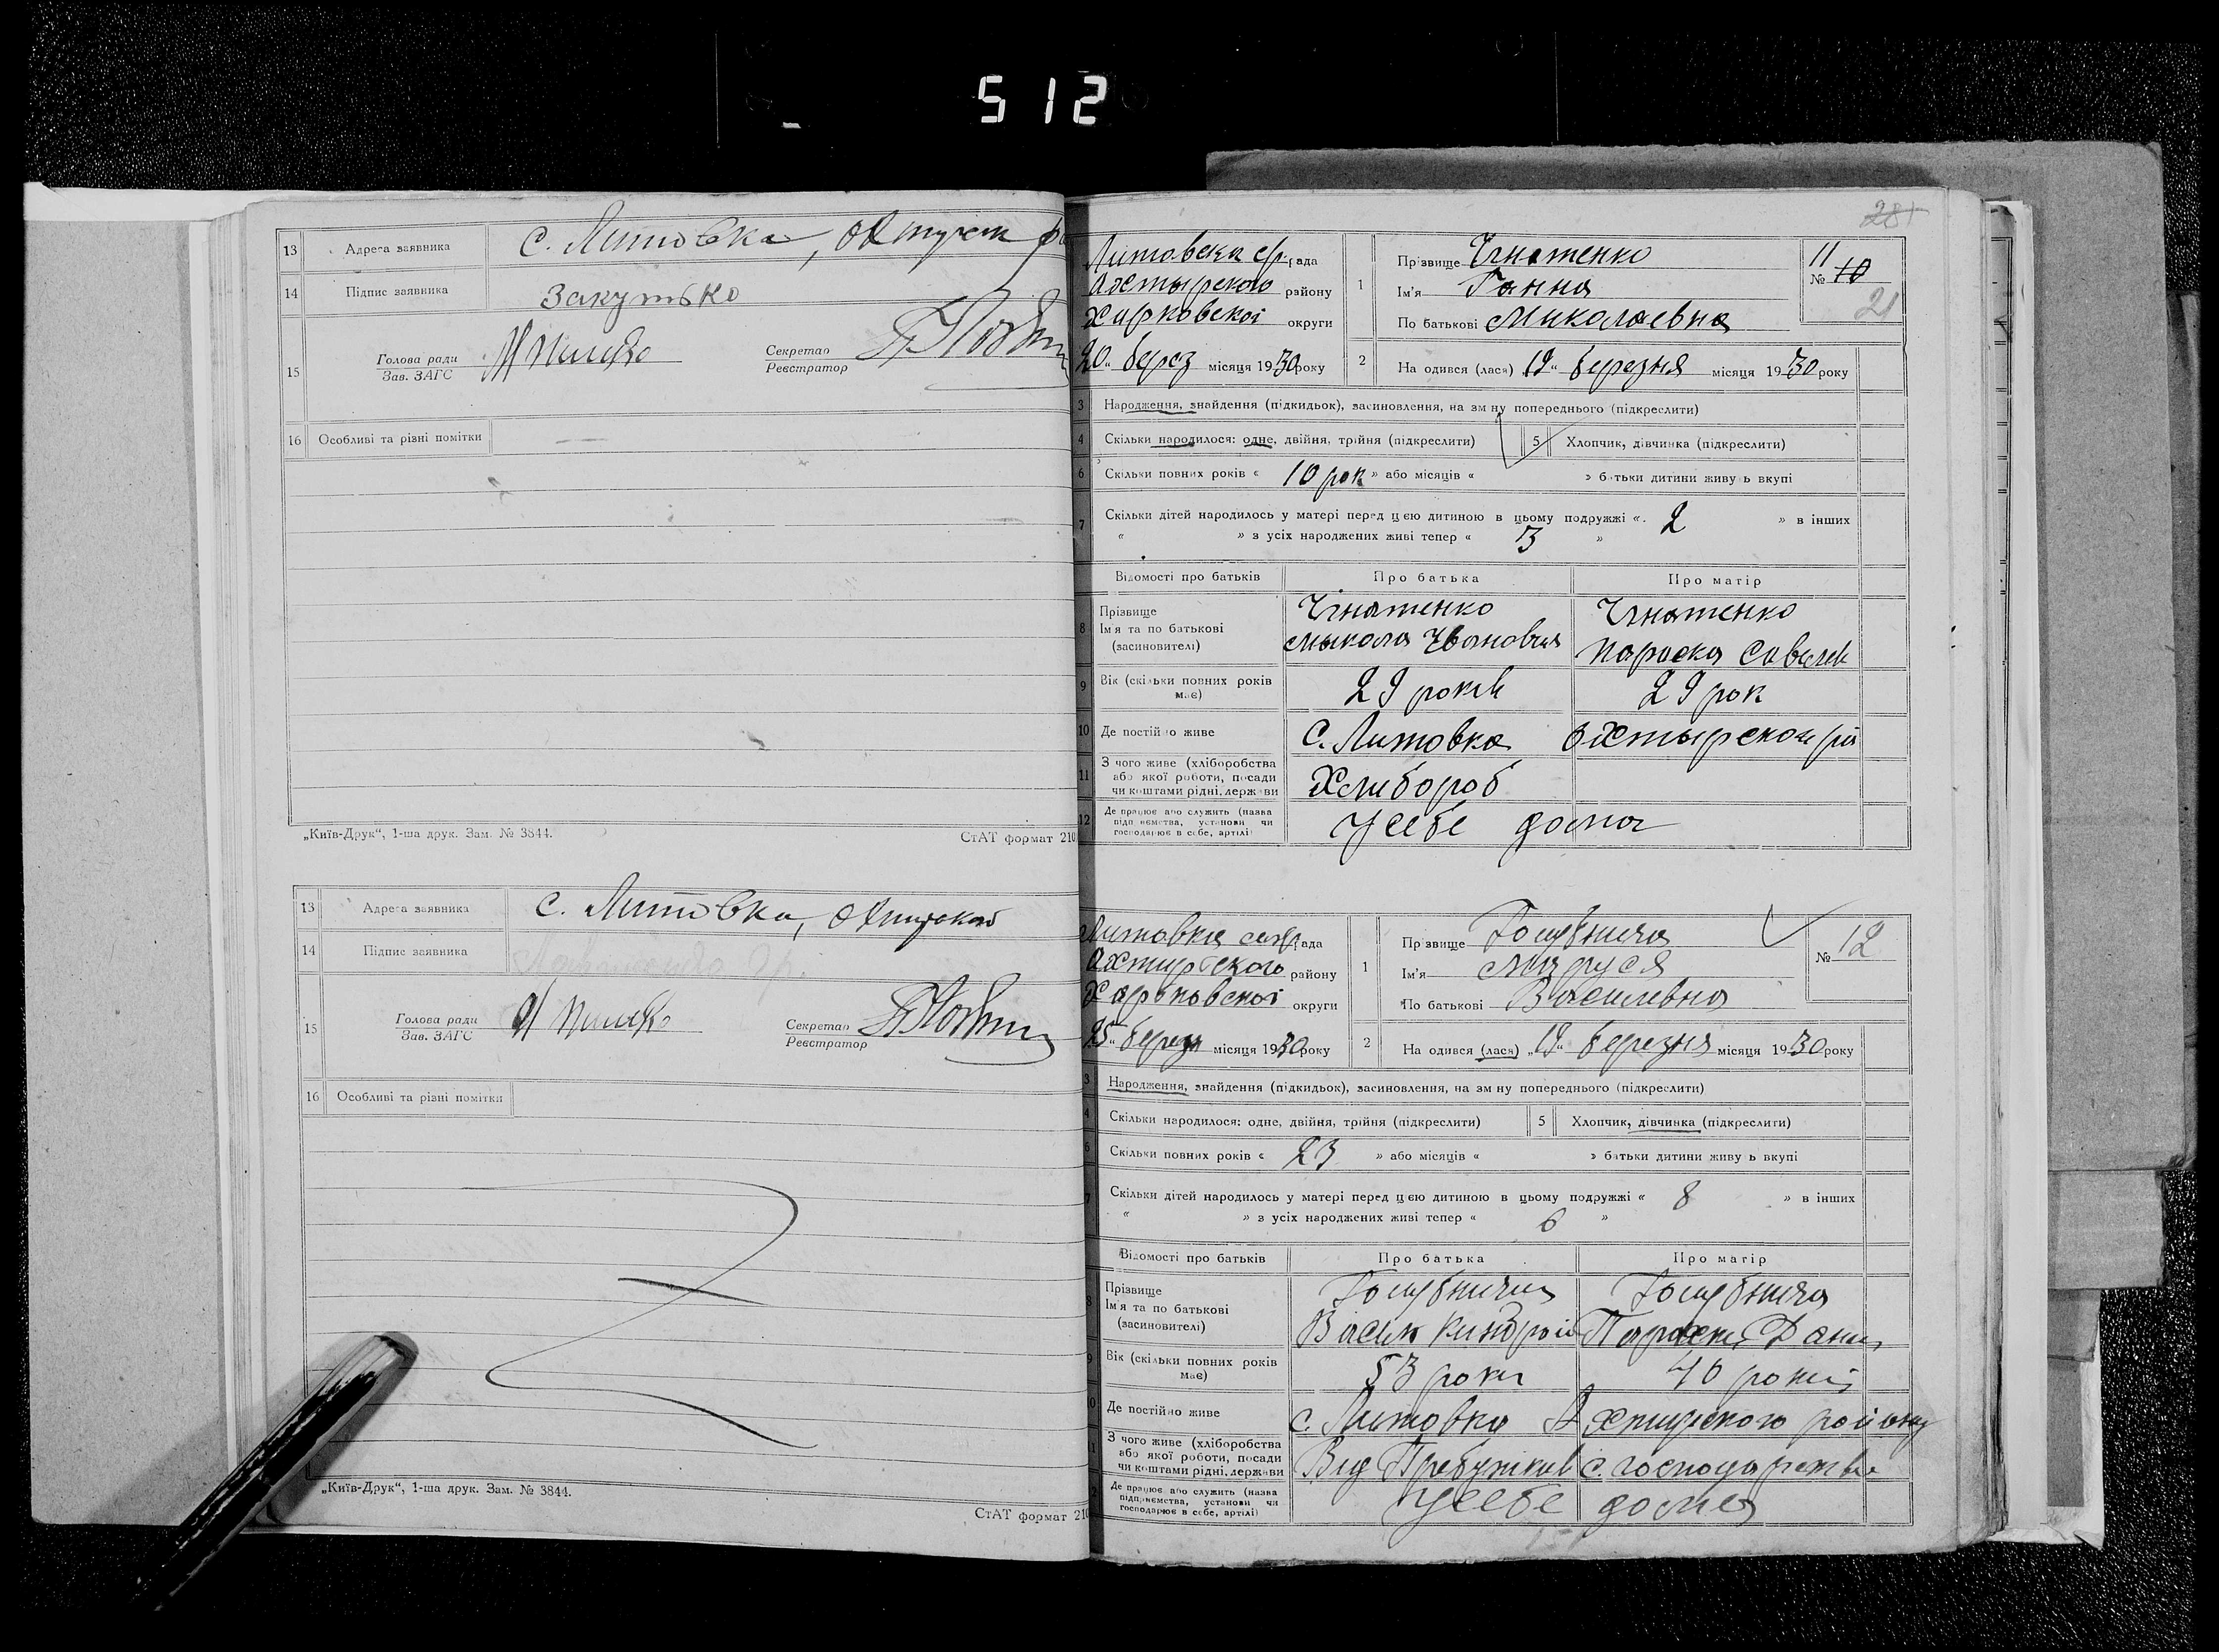 512
13 Адреса заявника с. Литовка, Охтирськ
14 Підпис заявника Закутько
15 Голова ради Зав. ЗАГС Секретар Реєстратор
16 Особливі та різні помітки
„Київ-Друк“, 1-ша друк. Зам. № 3844. СтАТ формат 210
13 Адреса заявника с. Литовка, Охтирської
14 Підпис заявника
15 Голова ради Зав. ЗАГС Секретар Реєстратор
16 Особливі та різні помітки
„Київ-Друк“, 1-ша друк. Зам. № 3844.
СтАТ формат 210
281
Литовськи ср. рада
Ахтырского району
Харковскоі округи
1 Прізвище Ігнатенко
Ім'я Ганна
По батькові Миколаевна
11
№ 10
21
20 „ берез місяця 1930 року
2 На одився (лася) „19“ березня місяця 1930 року
3 Народження, знайдення (підкидьок), засиновлення, на зм ну попереднього (підкреслити)
4 Скільки народилося: одне, двійня, трійня (підкреслити) 5 Хлопчик, дівчинка (підкреслити)
6 Скільки повних років « 10 рок » або місяців « » батьки дитини живу ь вкупі
7 Скільки дітей народилось у матері перед цією дитиною в цьому подружжі « 2 » в інших
« » з усіх народжених живі тепер « 3 »
Відомості про батьків Про батька Про матір
8 Прізвище Ім'я та по батькові (засиновителі)
Ігнатенко Ігнатенко
Микола Ивановия Параска Савелев
9 Вік (скільки повних років має) 29 років 29 рок
10 Де постійно живе С. Литовка Охтырскои ра
11 З чого живе (хліборобства або якої роботи, посади чи коштами рідні, держави Хлибороб
12 Де працює або служить (назва підприємства, установи чи господарює в себе, артілі) У себе дома
Литовка рада
Ахтирского району
Харьковскоі округи
1 Прізвище Голубнича
Ім'я Маруся
По батькові Василевна
№ 12
25 „ березн місяця 1930 року
2 На одився (лася) „19“ березня місяця 1930 року
3 Народження, знайдення (підкидьок), засиновлення, на зм ну попереднього (підкреслити)
4 Скільки народилося: одне, двійня, трійня (підкреслити) 5 Хлопчик, дівчинка (підкреслити)
6 Скільки повних років « 23 » або місяців « » батьки дитини живу ь вкупі
7 Скільки дітей народилось у матері перед цією дитиною в цьому подружжі « 8 » в інших
« » з усіх народжених живі тепер « 6 »
Відомості про батьків Про батька Про матір
8 Прізвище Ім'я та по батькові (засиновителі)
Голубничи Голубнича
Васил Киндрат Параска Дани
9 Вік (скільки повних років має) 53 роки 40 років
10 Де постійно живе с. Литовка Ахтирского району
11 З чого живе (хліборобства або якої роботи, посади чи коштами рідні, держави Вид Прибутків с. господарства
12 Де працює або служить (назва підприємства, установи чи господарює в себе, артілі) у себе дома